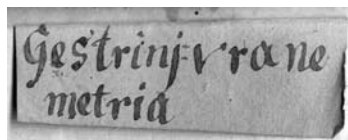 Gestrinj vrane
metria